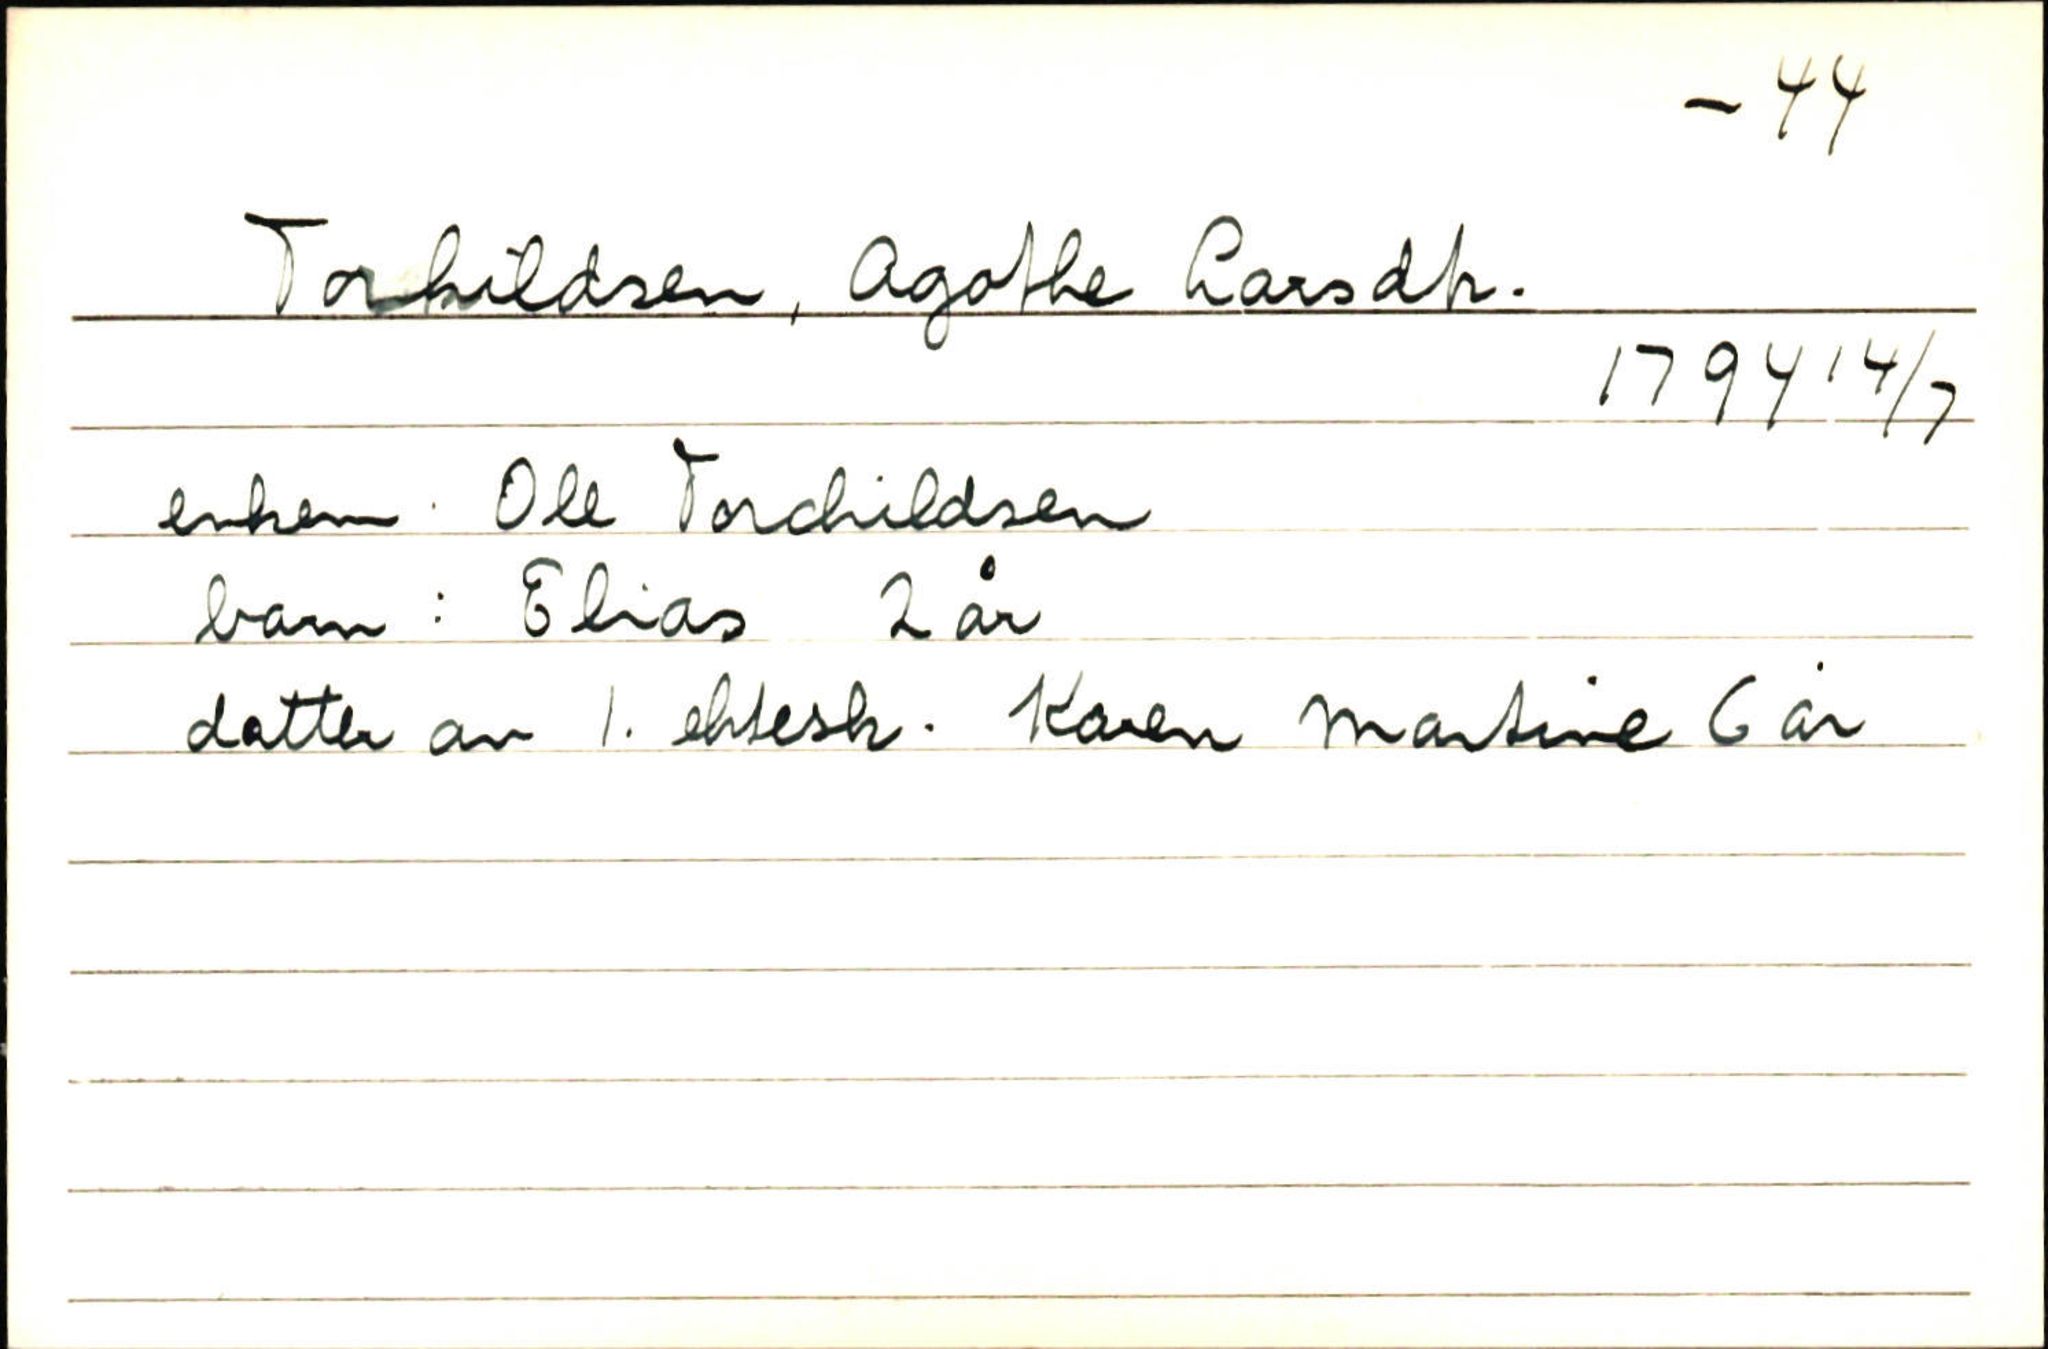 - 44
Torkildsen, Agathe Larsdtr.
1794 14/7
enkem. Ole Torchildsen
barn: Elias 2 år
datter av 1. ektesk. Karen Martine 6 år